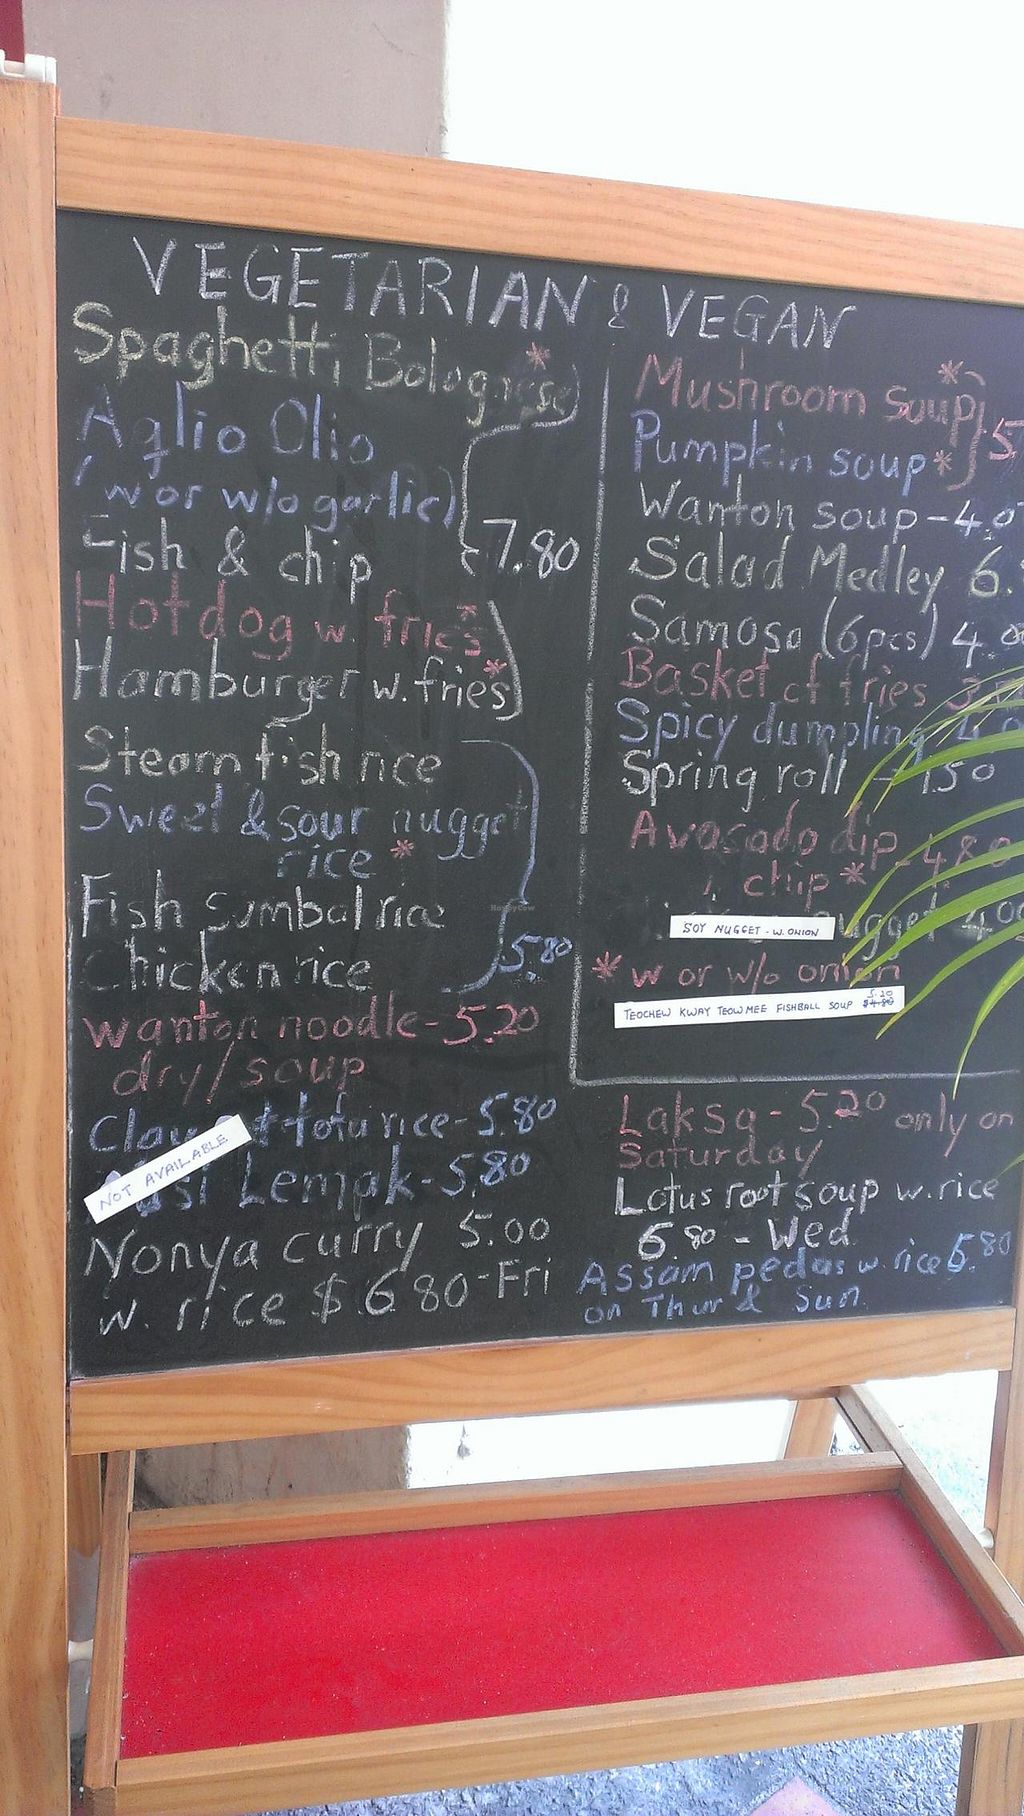 VEGETARIAN & VEGAN
Spaghetti Bolognese *
Aglio Olio
(w or w/o garlic)
Fish & chip
7.80
Hotdog w. fries *
Hamburger w. fries *
Steam fish rice
Sweet & sour nugget
rice *
Fish sambal rice
Chicken rice
5.80
wanton noodle - 5.20
dry/soup
Clay tofu rice - 5.80
NOT AVAILABLE
Lemak - 5.80
Nonya curry 5.00
w. rice $6.80 - Fri
Mushroom soup *
Pumpkin soup *
5
Wanton soup - 4.0
Salad Medley 6.
Samosa (6pcs) 4.00
Basket of fries 3
Spicy dumpling 4.0
Spring roll - 1.50
Avasado dip - 4.80
chip *
nugget 4.00
SOY NUGGET - W. ONION
* w or w/o onion
5.20
TEOCHEW KWAY TEOW MEE FISHBALL SOUP $4.80
Laksa - 5.20 only on
Saturday
Lotus root soup w. rice
6.80 - Wed
Assam pedas w. rice 5.80
on Thur & Sun.